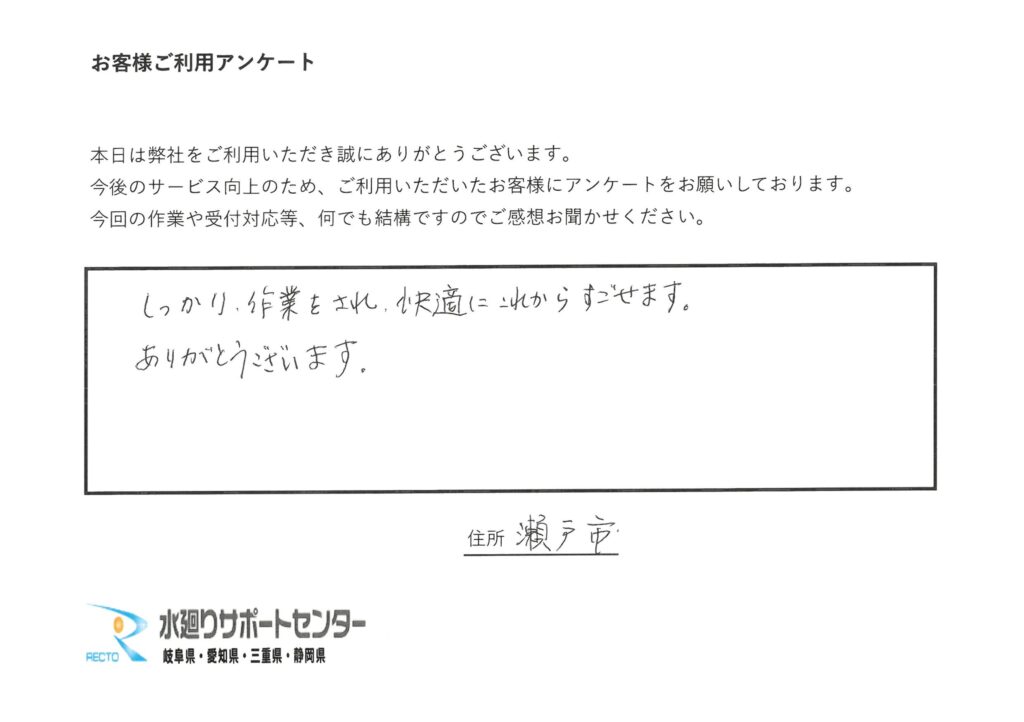 お客様ご利用アンケート
本日は弊社をご利用いただき誠にありがとうございます。
今後のサービス向上のため、ご利用いただいたお客様にアンケートをお願いしております。
今回の作業や受付対応等、何でも結構ですのでご感想お聞かせください。
しっかり、作業をされ、快適にこれからすごせます。
ありがとうございます。
住所 瀬戸市
RECTO 水廻りサポートセンター
岐阜県・愛知県・三重県・静岡県